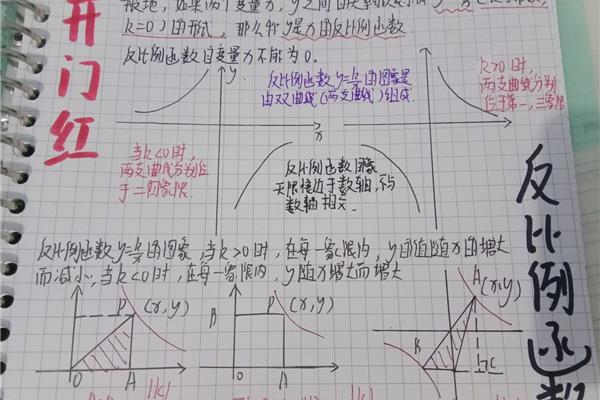 开门红
般地，如果两个变量
k=0)的形式，那么称y是x的反比例函数
反比例函数自变量x不能为0.
y
反比例函数y=k/x的图象是
由双曲线(两支曲线)组成.
k>0时，
两支曲线分别
位于第一、三象限
x
当k<0时，
两支曲线分别位
于二四象限.
反比例函数图象
无限接近于数轴，不与
数轴相交.
反比例函数y=k/x的图象，当k>0时，在每一象限内，y的值随x的增大
而减小；当k<0时，在每一象限内，y随x增大而增大
P (x,y)
O A
B P (x,y)
O A
A(x,y)
B C
|k|
|k|
反比例函数